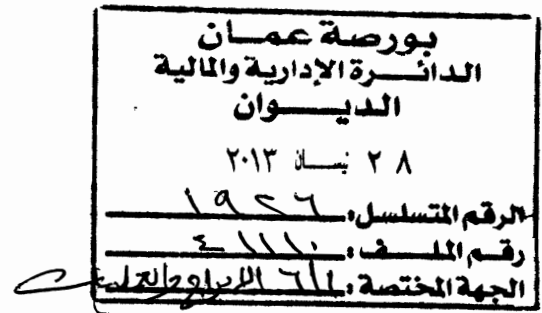 بورصة عمان
الدائرة الإدارية والمالية
الديوان
٢٨ نيسان ٢٠١٣
الرقم المتسلسل: ١٩٢٦
رقم الملف: ٤١١١٠
الجهة المختصة: الإدراج